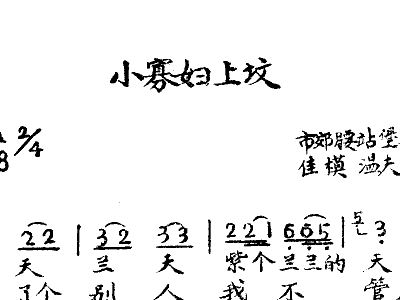 小寡妇上坟
2/4
8
市郊腰站堡
佳模 温夫
2 2 | 3 2 3 3 | 2 2 1 6 6 5 | 3
天 兰 天 紫个兰兰的 天
了个 别 人 我 不 管